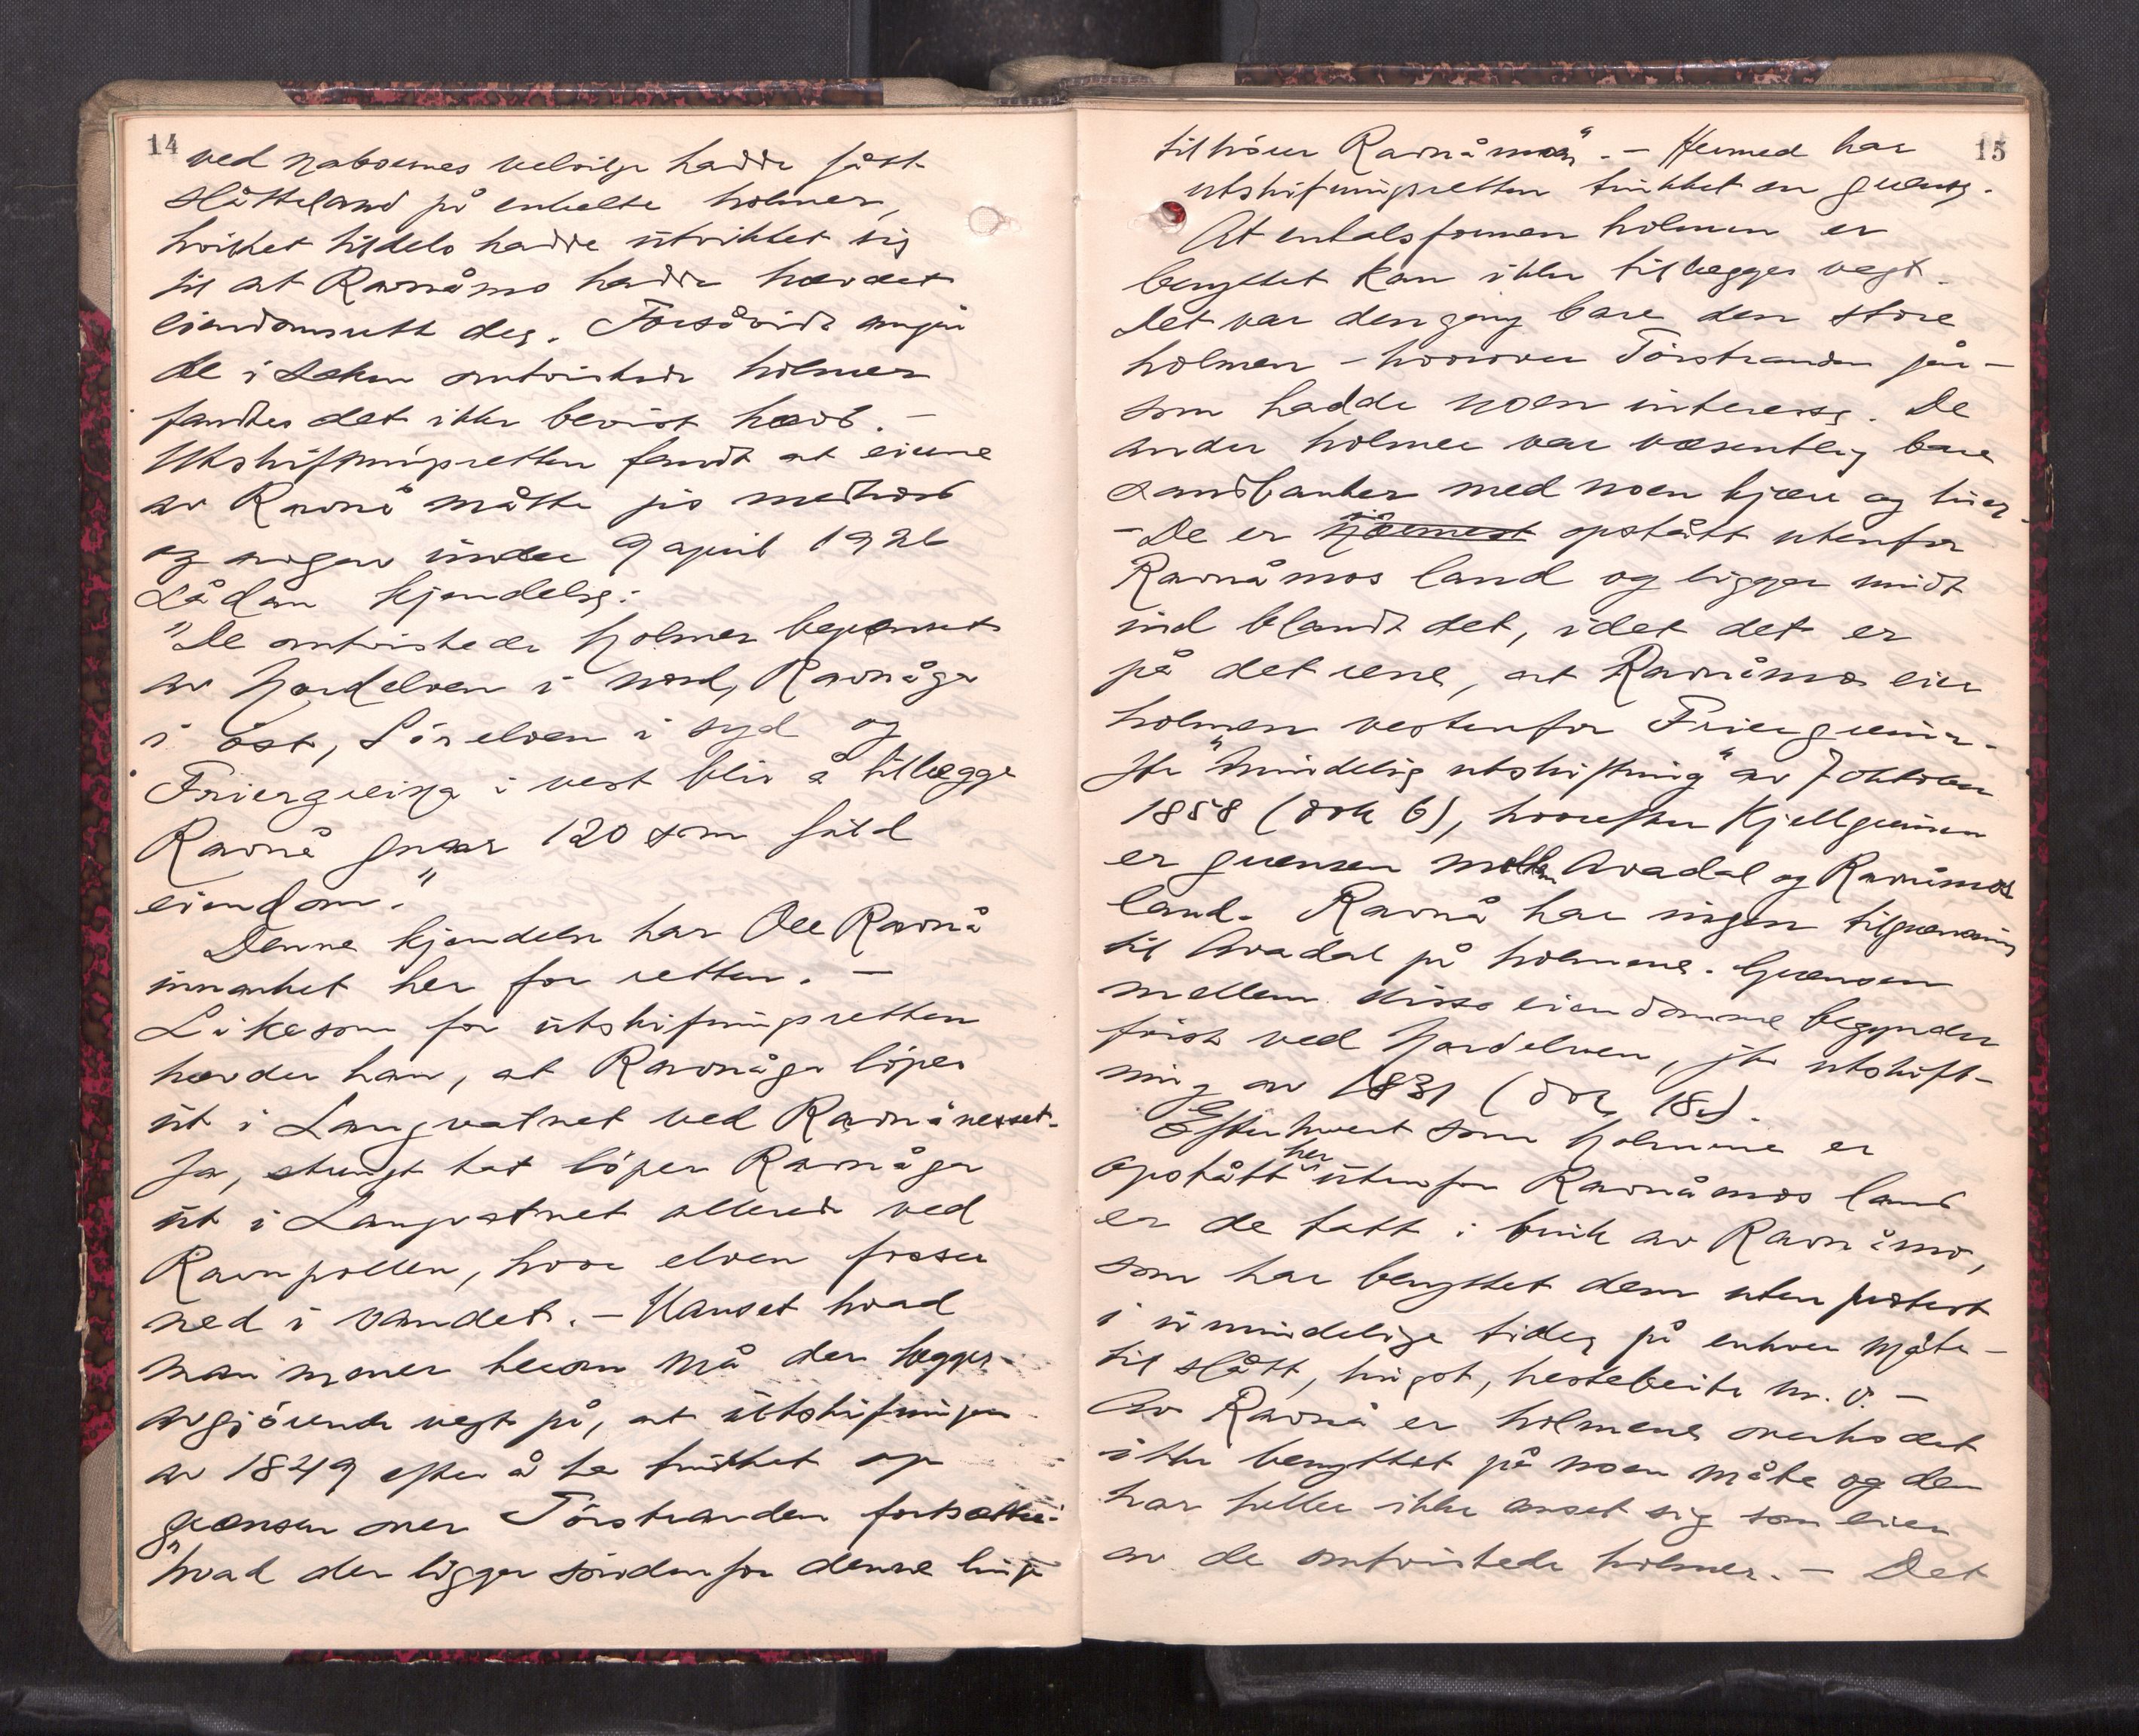 14
ved naboernes velvilje hadde fåst
slåtteland på enkelte holmer,
hvilket tildels hadde utviklet sig
til at Ravnåmo hadde hævdet
eiendomsrett der. Forsåvidt angår
de i saken omtvistede holmer
fandtes det ikke bevist hævd. -
Utskiftningsretten fandt at eierne
av Ravnå måtte gis medhold
og avgav under 9 april 1926
sådan kjendelse:
"De omtvistede holmer begrænset
av Nordelven i nord, Ravnåga
i øst, Sørelven i syd og
Friergreina i vest blir å tillægge
Ravnå gnr 120 som fuld
eiendom."
Denne kjendelse har Ole Ravnå
innanket her for retten. -
Likesom for utskiftningsretten
hævder han, at Ravnåga löper
ut i Langvatnet ved Ravnånesset.
Ja, strengt tat löper Ravnåga
ut i Langvatnet allerede ved
Ravnpollen, hvor elven fosser
ned i vandet. - Uanset hvad
man mener herom må der lægges
avgjörende vegt på, at utskiftningen
av 1849 efter å ha trukket op
grænsen over Törstranden fortsætter:
"hvad der ligger sönden for denne linje
15
tilhörer Ravnåmoen". - Hermed har
utskiftningsretten trukket en grense.
At entalsformen holmen er
benyttet kan ikke tillægges vegt.
Det var dengang bare den store
holmen - hvorover Törstranden går -
som hadde noen interesse. De
andre holmer var væsentlig bare
sandbanker med noen kjær og tuer.
- De er opstått utenfor
Ravnåmos land og ligger midt
ind blandt det, idet det er
på det rene, at Ravnåmo eier
holmen vestenfor Friergrein.
Jfr "Mindelig utskiftning" av 7 oktober
1858 (dok 6), hvorefter Kjellgreinen
er grensen mellem Avadal og Ravnåmos
land. Ravnå har ingen tilgrænsning
til Avadal på holmene. Grænsen
mellem disse eiendomme begynder
först ved Nordelven, jfr utskift-
ning av 1831 (dok 18).
Efterhvert som holmene er
opstått her utenfor Ravnåmos land
er de tatt i bruk av Ravnåmo,
som har benyttet dem uten protest
i uminnelige tider på enhver måte -
til slått, hugst, hestebeite m. v. -
Av Ravnå er holmene overhodet
ikke benyttet på noen måte og den
har heller ikke anset sig som eier
av de omtvistede holmer. - Det